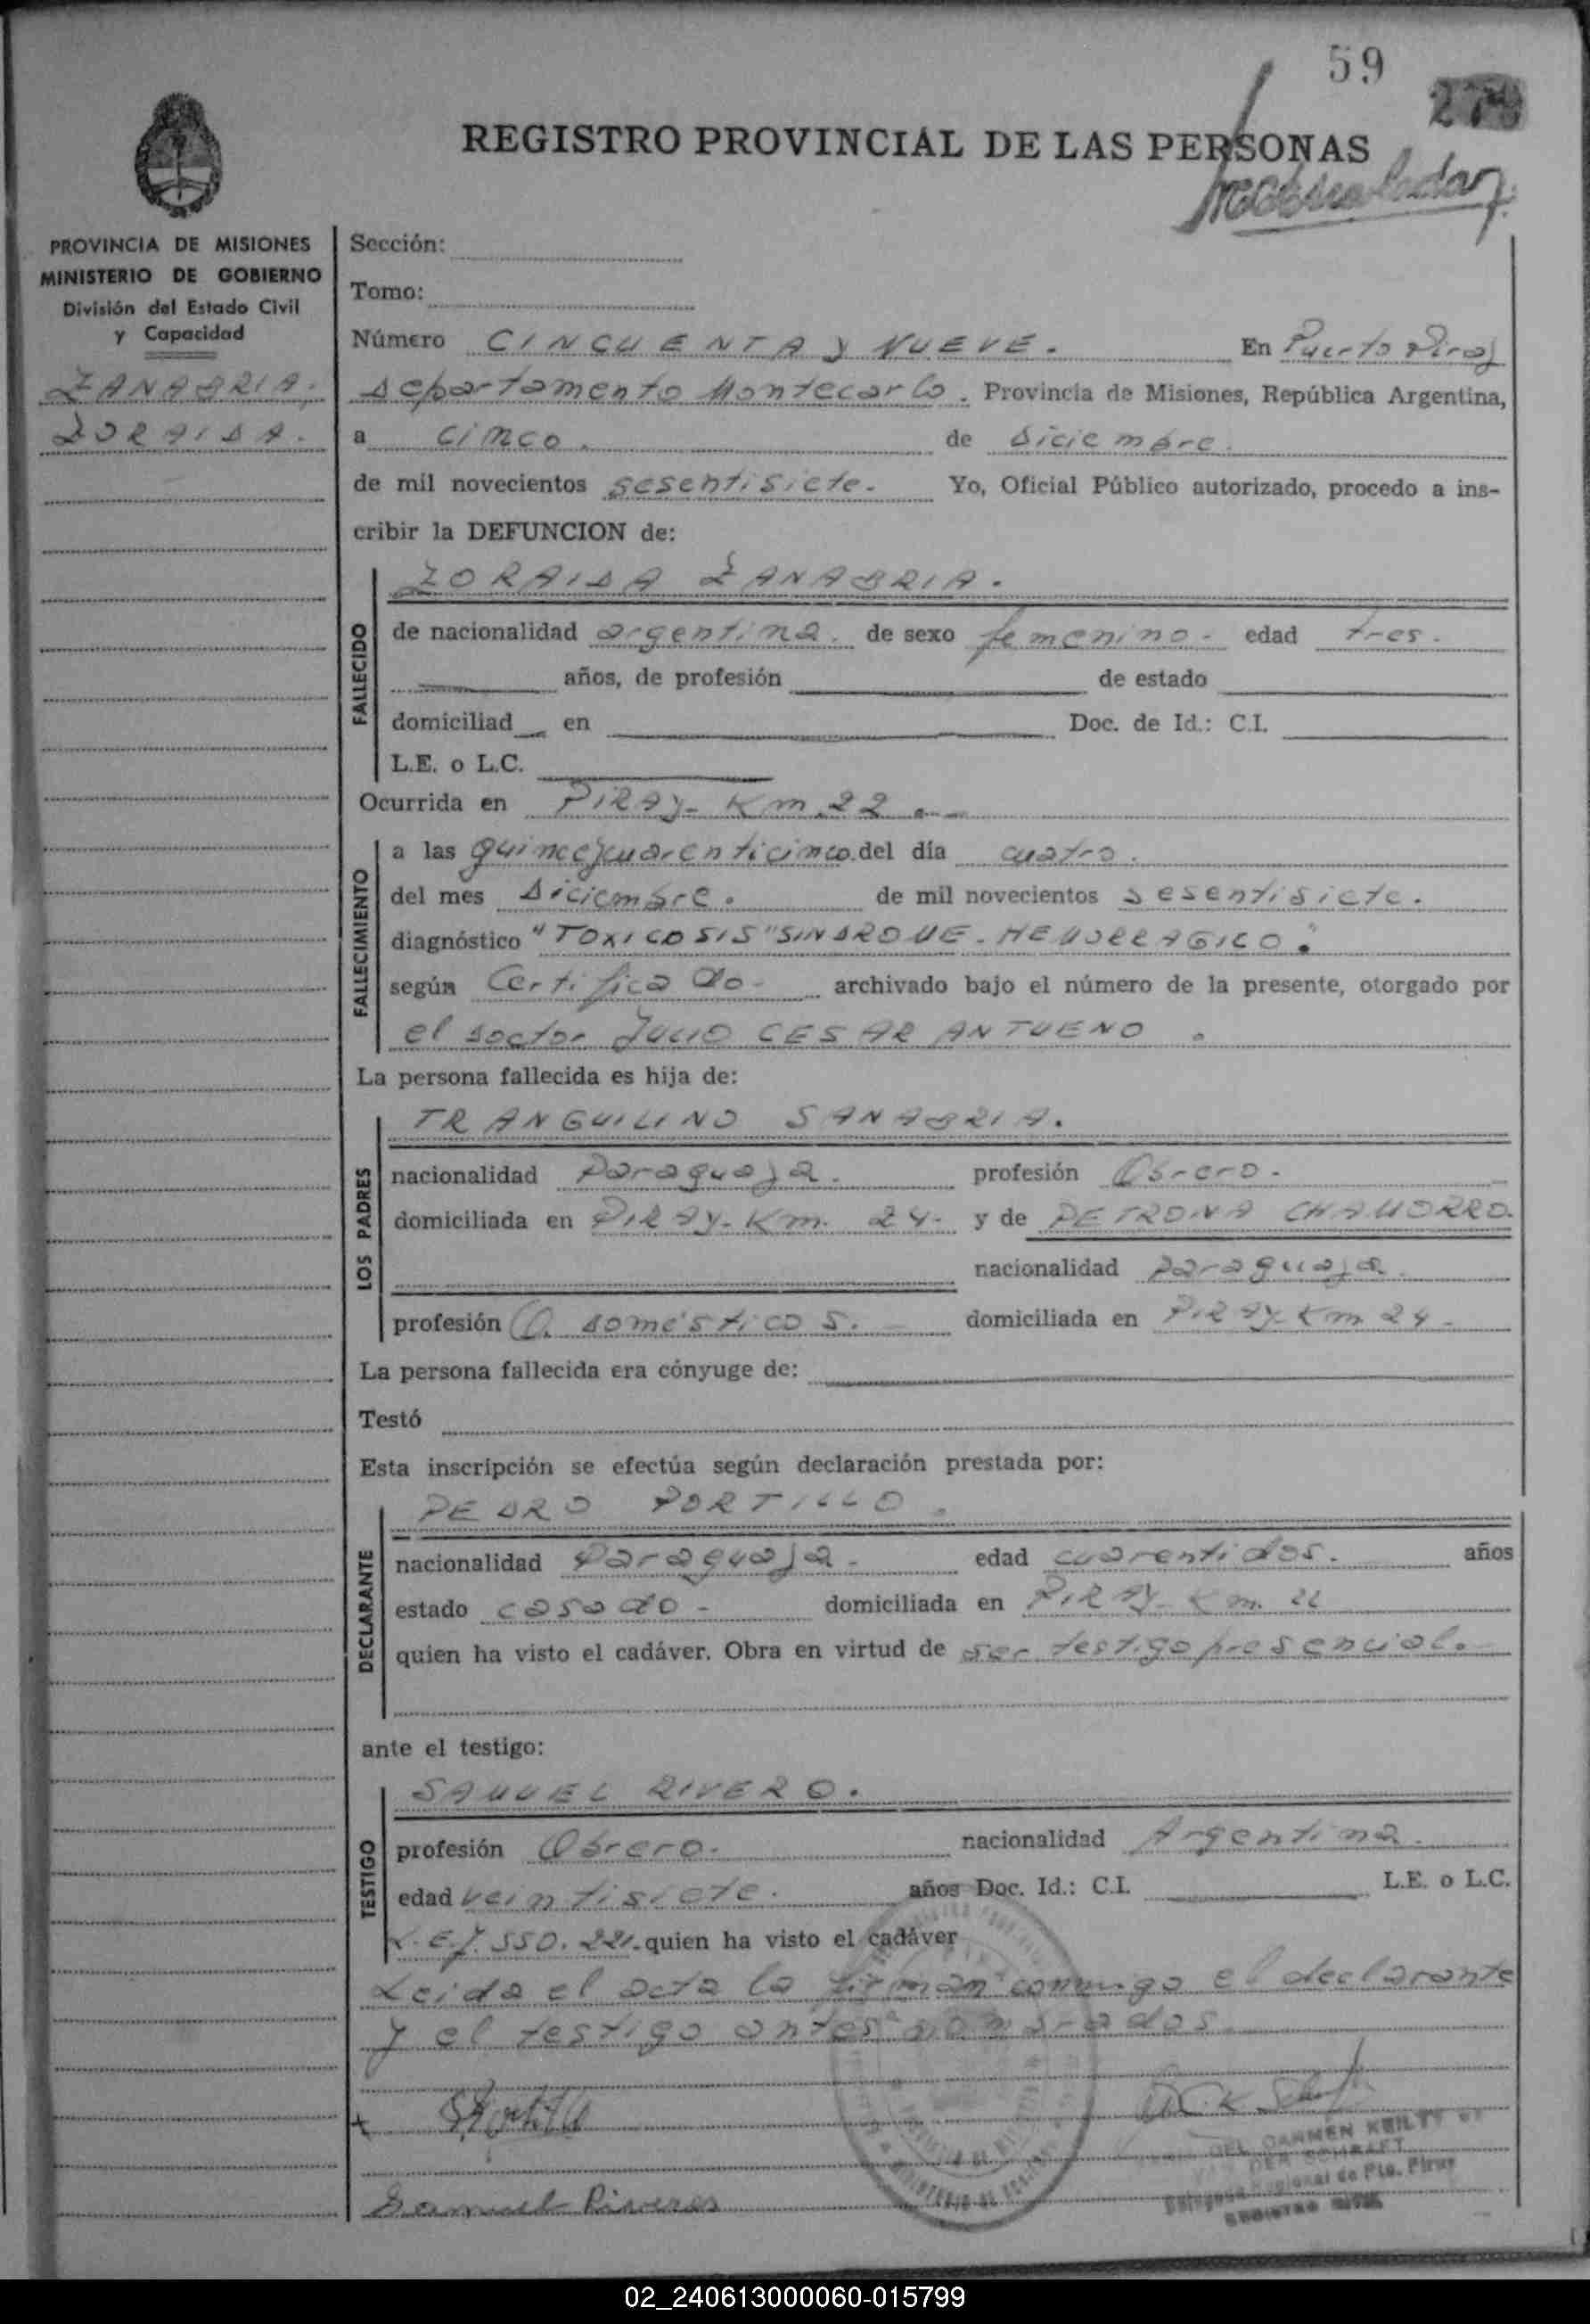 59
REGISTRO PROVINCIAL DE LAS PERSONAS
PROVINCIA DE MISIONES
MINISTERIO DE GOBIERNO
División del Estado Civil
y Capacidad
ZANABRIA.
ZORAIDA.
Sección:
Tomo:
Número CINCUENTA y NUEVE. En Puerto Piray
Departamento Montecarlo. Provincia de Misiones, República Argentina,
a cinco. de diciembre.
de mil novecientos sesentisiete. Yo, Oficial Público autorizado, procedo a ins-
cribir la DEFUNCION de:
FALLECIDO
ZORAIDA ZANABRIA.
de nacionalidad argentina. de sexo femenino. edad tres.
años, de profesión de estado
domiciliad en Doc. de Id.: C.I.
L.E. o L.C.
Ocurrida en PIRAY- Km 22.
FALLECIMIENTO
a las quince y cuarenticinco. del día cuatro.
del mes Diciembre. de mil novecientos sesentisiete.
diagnóstico "TOXICOSIS" SINDROME-HEMORRAGICO".
según Certificado- archivado bajo el número de la presente, otorgado por
el doctor JULIO CESAR ANTUENO.
La persona fallecida es hija de:
LOS PADRES
TRANGUILINO SANABRIA.
nacionalidad Paraguaya. profesión Obrero.
domiciliada en PIRAY-Km. 24- y de PETRONA CHAMORRO.
nacionalidad paraguaya.
profesión Q. domésticos. domiciliada en PIRAY-Km 24-
La persona fallecida era cónyuge de:
Testó
Esta inscripción se efectúa según declaración prestada por:
DECLARANTE
PEDRO PORTILLO.
nacionalidad Paraguaya. edad cuarentidos. años
estado casado- domiciliada en PIRAY-Km. 22
quien ha visto el cadáver. Obra en virtud de ser testigo presencial.
ante el testigo:
TESTIGO
SAMUEL RIVERO.
profesión Obrero. nacionalidad Argentina.
edad veintisiete. años Doc. Id.: C.I. L.E. o L.C.
L.E.7.550.221. quien ha visto el cadáver
Leida el acta la firman conmigo el declarante
y el testigo antes nombrados.
DEL CARMEN KEILTY
DER SCHRAFT
Regional de Pto. Piray
REGISTRO CIVIL
02_240613000060-015799